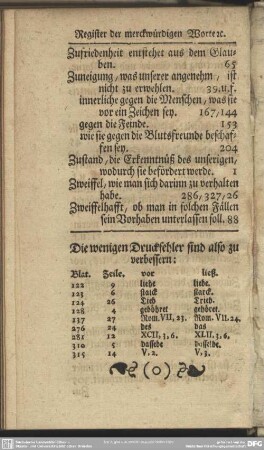 Register der merckwürdigen Worte ꝛc.
Zufriedenheit entstehet aus dem Glau-
ben. 65
Zuneigung, was unserer angenehm, ist
nicht zu erwehlen. 39.u.f.
innerliche gegen die Menschen, was sie
vor ein Zeichen sey. 167,144
gegen die Feinde. 153
wie sie gegen die Blutsfreunde beschaf-
fen sey. 204
Zustand, die Erkenntnüß des unserigen,
wodurch sie befördert werde. 1
Zweiffel, wie man sich darinn zu verhalten
habe. 286,327,26
Zweiffelhafft, ob man in solchen Fällen
sein Vorhaben unterlassen soll. 88
Die wenigen Druckfehler sind also zu
verbessern:
Blat. Zeile. vor ließ.
122 9 lieht liebe.
123 6 starck starck.
124 26 Tieb Trieb.
128 4 gebühret gehöret.
137 27 Rom. VII, 23. Rom. VII. 24.
276 24 des das
281 12 XCII, 3, 6. XLII, 3, 6.
310 5 dasselbe
315 14 V. 2. V. 3.
(o)